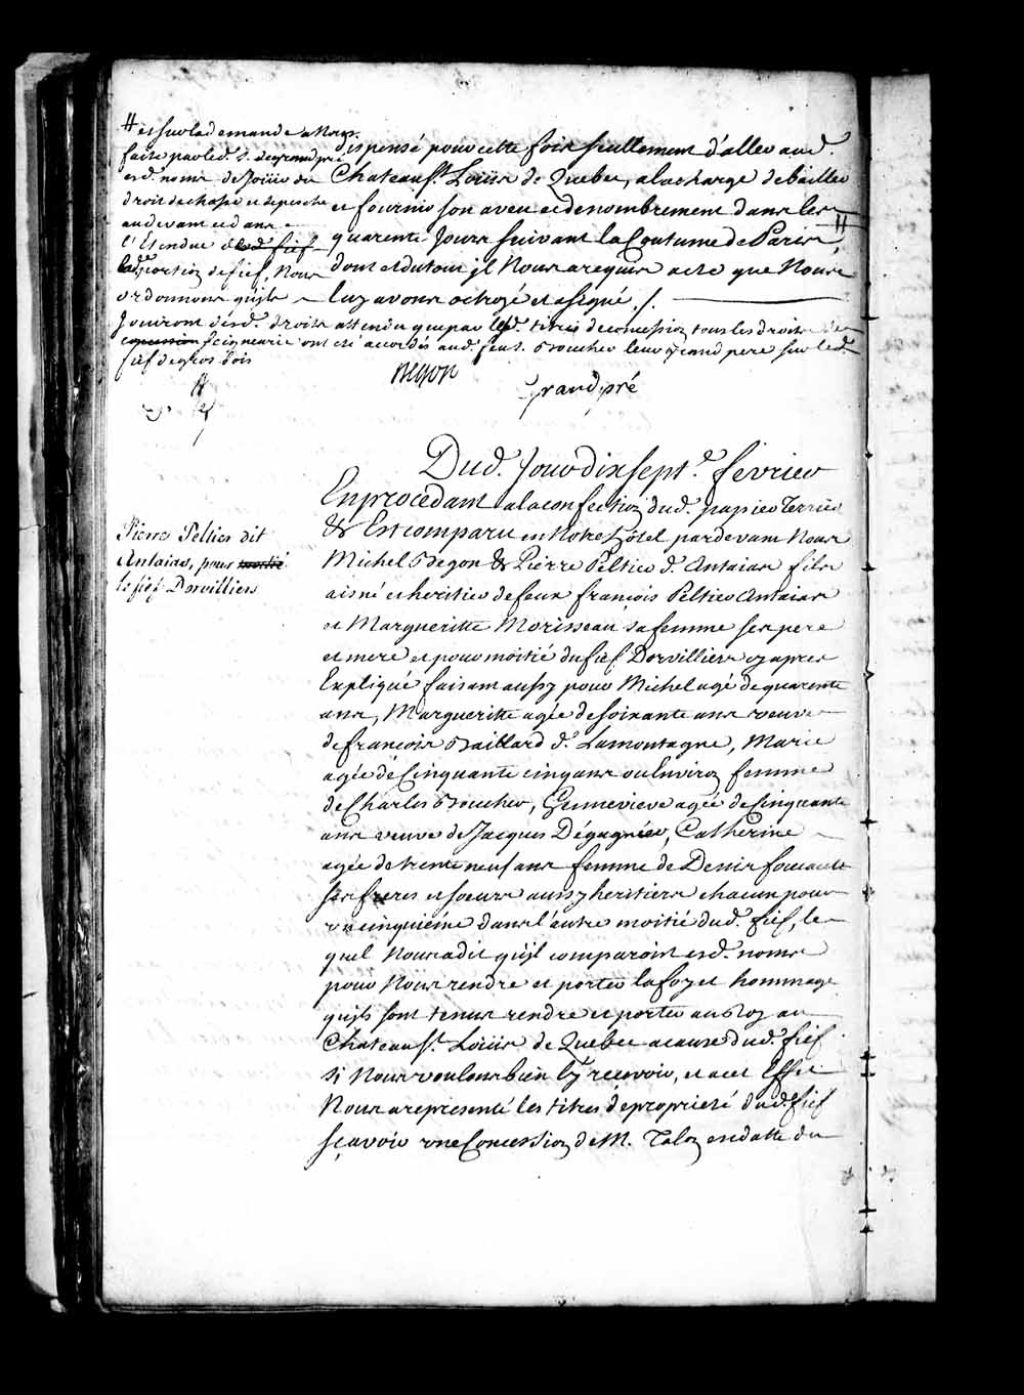 # et sur la demande a Nous
faite par led. S. de grandpré
esd. noms de Jouir du
droit de chasse et de pesche
audevant et dans
l'Estendue dud. fief
lad. portion de fief, Nous
ordonnons qu'ils
Jouiront desd. droits attendu que par lesd. titres de concession tous les droits de
concession seigneurie ont été accordés aud. feu S. Boucher leur grand pere sur led.
fief de gros bois
dispensé pour cette fois seullement d'aller aud.
Chateau St. Loüis de Quebec, a la charge de bailler
et fournir son aveu et denombrement dans les
quarente Jours suivant la Coutume de Paris, #
dont et du tout jl Nous a requis acte que Nous
luy avons octroyé et a signé ./.
Begon
Grandpré
Dud. Jour dix sept.e fevrier
En procedant a la confection dud. papier Terrier
& Est comparu en Notre hôtel pardevant Nous
Michel Begon & Pierre Peltier d. Antaias fils
aisné et heritier de feux françois Peltier Antaias
et Marguerite Morisseau sa femme ses pere
et mere et pour moitié du fief Dorvilliers cy apres
Expliqué faisant aussy pour Michel agé de quarente
ans, Marguerite agée de soixante ans veuve
de francois Baillard d. Lamontagne, Marie
agée de Cinquante cinq ans ou Environ femme
de Charles Boucher, Genneviève agée de Cinquante
ans veuve de Jacques Dégagnier, Catherine
agée de trente neuf ans femme de Denis foucault
ses freres et soeurs aussy heritiers chacun pour
un cinquiéme dans l'autre moitié dud. fief, le
quel Nous a dit qu'jl comparoist esd. noms
pour Nous rendre et porter la foy et hommage
qu'jls sont tenus rendre et porter au Roy au
Chateau St. Loüis de Quebec a cause dud. fief
si Nous voulons bien l'y recevoir, et a cet Effet
Nous a representé les titres de propriété dud. fief
sçavoir une Concession de M. Talon en datte du
Pierre Peltier dit
Antaias, pour moitié
le fief Dorvilliers